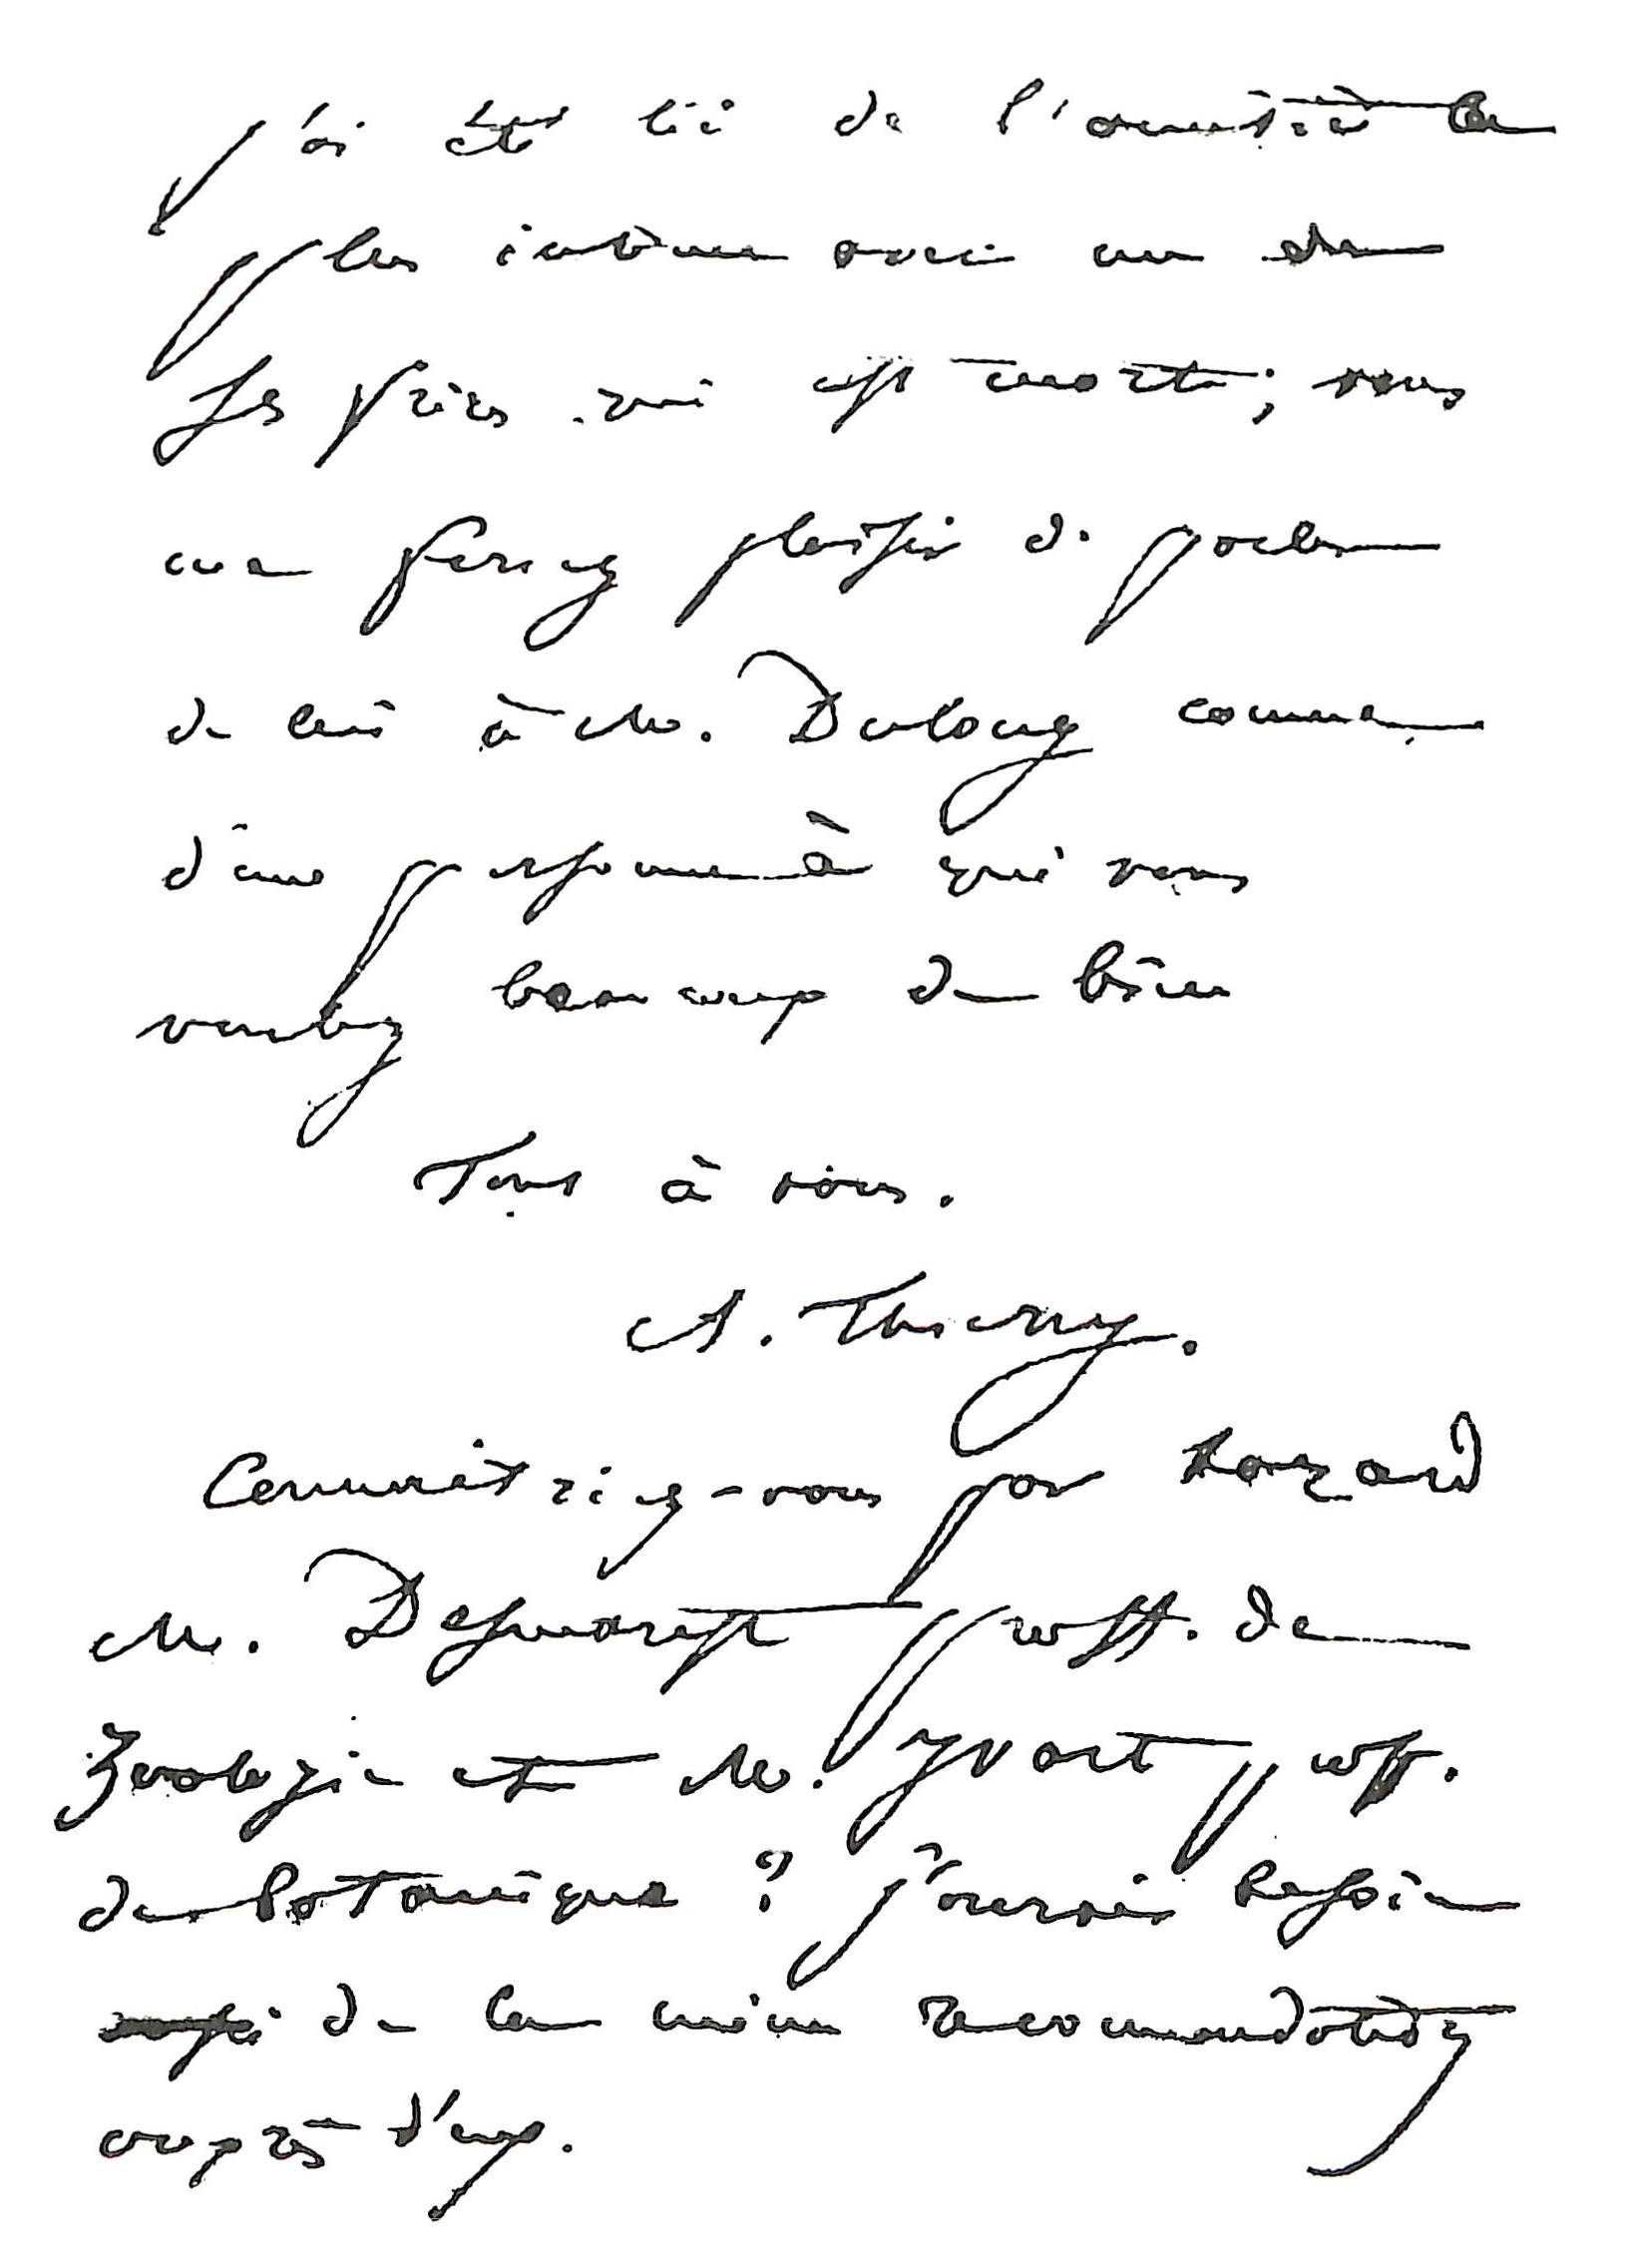 j'ai été lié de l'amitié la
plus intime avec un de
ses frères qui est mort; vous
me ferez plaisir de parler
de lui à M. Dulong comme
d'une personne à qui vous
voulez beaucoup de bien
Tout à vous.
A. Thierry.
Connaitriez-vous par hazard
M. Desmarest proff. de
Zoologie et M. Yvart proff.
de botanique? j'aurais besoin
aussi de la même recommandation
auprès d'eux.